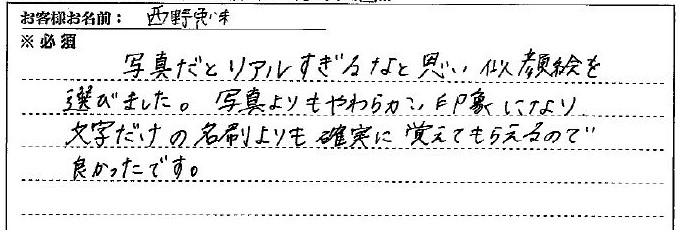 お客様お名前： 西野
※必須
写真だとリアルすぎるなと思い似顔絵を
選びました。写真よりもやわらかい印象になり
文字だけの名刺よりも確実に覚えてもらえるので
良かったです。